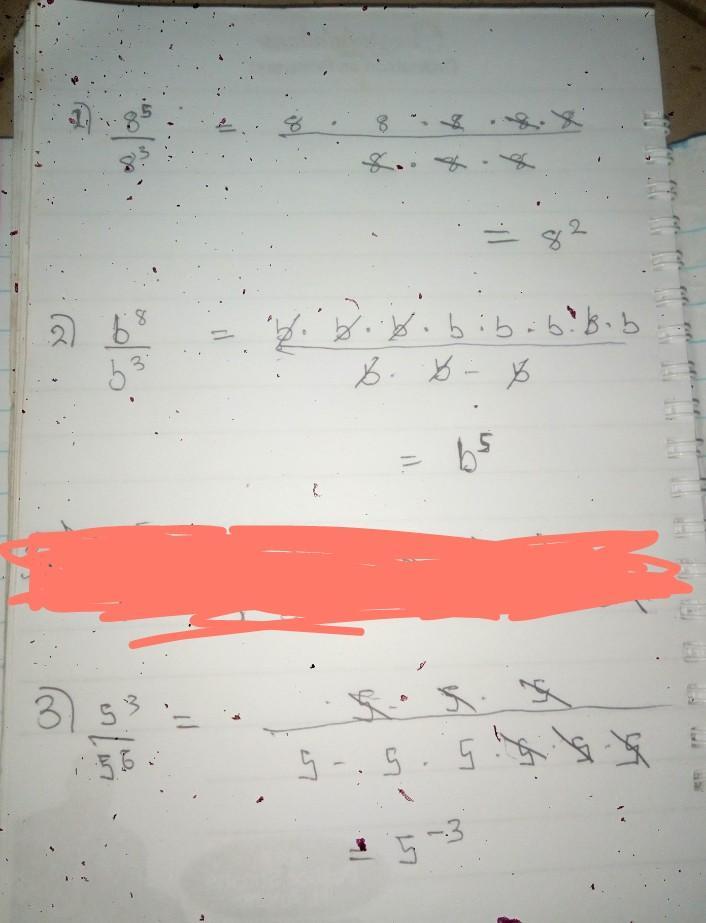 1) 8⁵/8³ = 8 · 8 · 8 · 8 · 8 / 8 · 8 · 8
= 8²
2) b⁸/b³ = b · b · b · b · b · b · b · b / b · b - b
= b⁵
3) 5³/5⁶ = 5 · 5 · 5 / 5 - 5 · 5 · 5 · 5 · 5
= 5⁻³